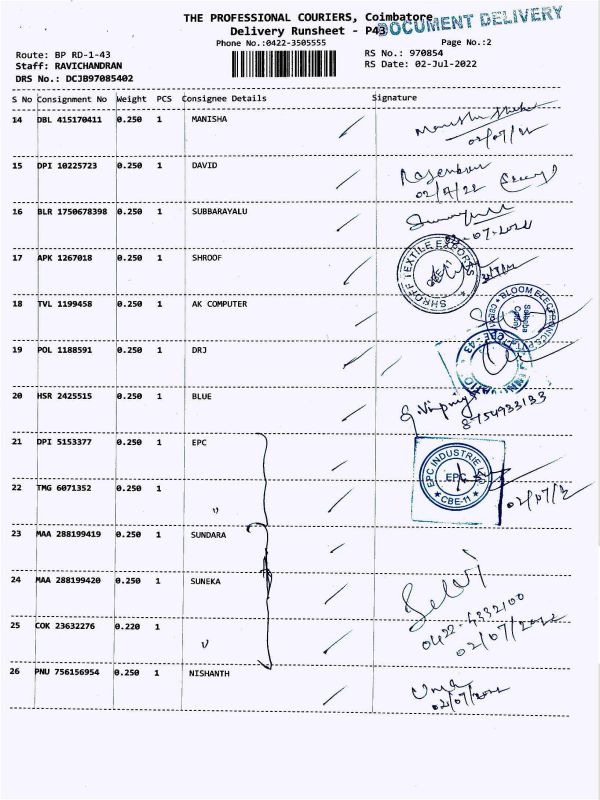 THE PROFESSIONAL COURIERS, Coimbatore
DOCUMENT DELIVERY
Delivery Runsheet - P43
Phone No.:0422-3505555 Page No.:2
Route: BP RD-1-43 RS No.: 970854
Staff: RAVICHANDRAN RS Date: 02-Jul-2022
DRS No.: DCJB97085402
S No Consignment No Weight PCS Consignee Details Signature
14 DBL 415170411 0.250 1 MANISHA
02/07/22
15 DPI 10225723 0.250 1 DAVID
02/7/22
16 BLR 1750678398 0.250 1 SUBBARAYALU
17 APK 1267018 0.250 1 SHROOF
SHROFF TEXTILE EXPORTS
18 TVL 1199458 0.250 1 AK COMPUTER
BLOOM ELECTRONICS
19 POL 1188591 0.250 1 DRJ
CBE-43
20 HSR 2425515 0.250 1 BLUE
8754933133
21 DPI 5153377 0.250 1 EPC
EPC INDUSTRIE
EPC
CBE-11
22 TMG 6071352 0.250 1 "
02/07/2
23 MAA 288199419 0.250 1 SUNDARA
24 MAA 288199420 0.250 1 SUNEKA
Selvi
0422-4332100
25 COK 23632276 0.220 1 "
02/07/2022
26 PNU 756156954 0.250 1 NISHANTH
Uma
02/07/2022